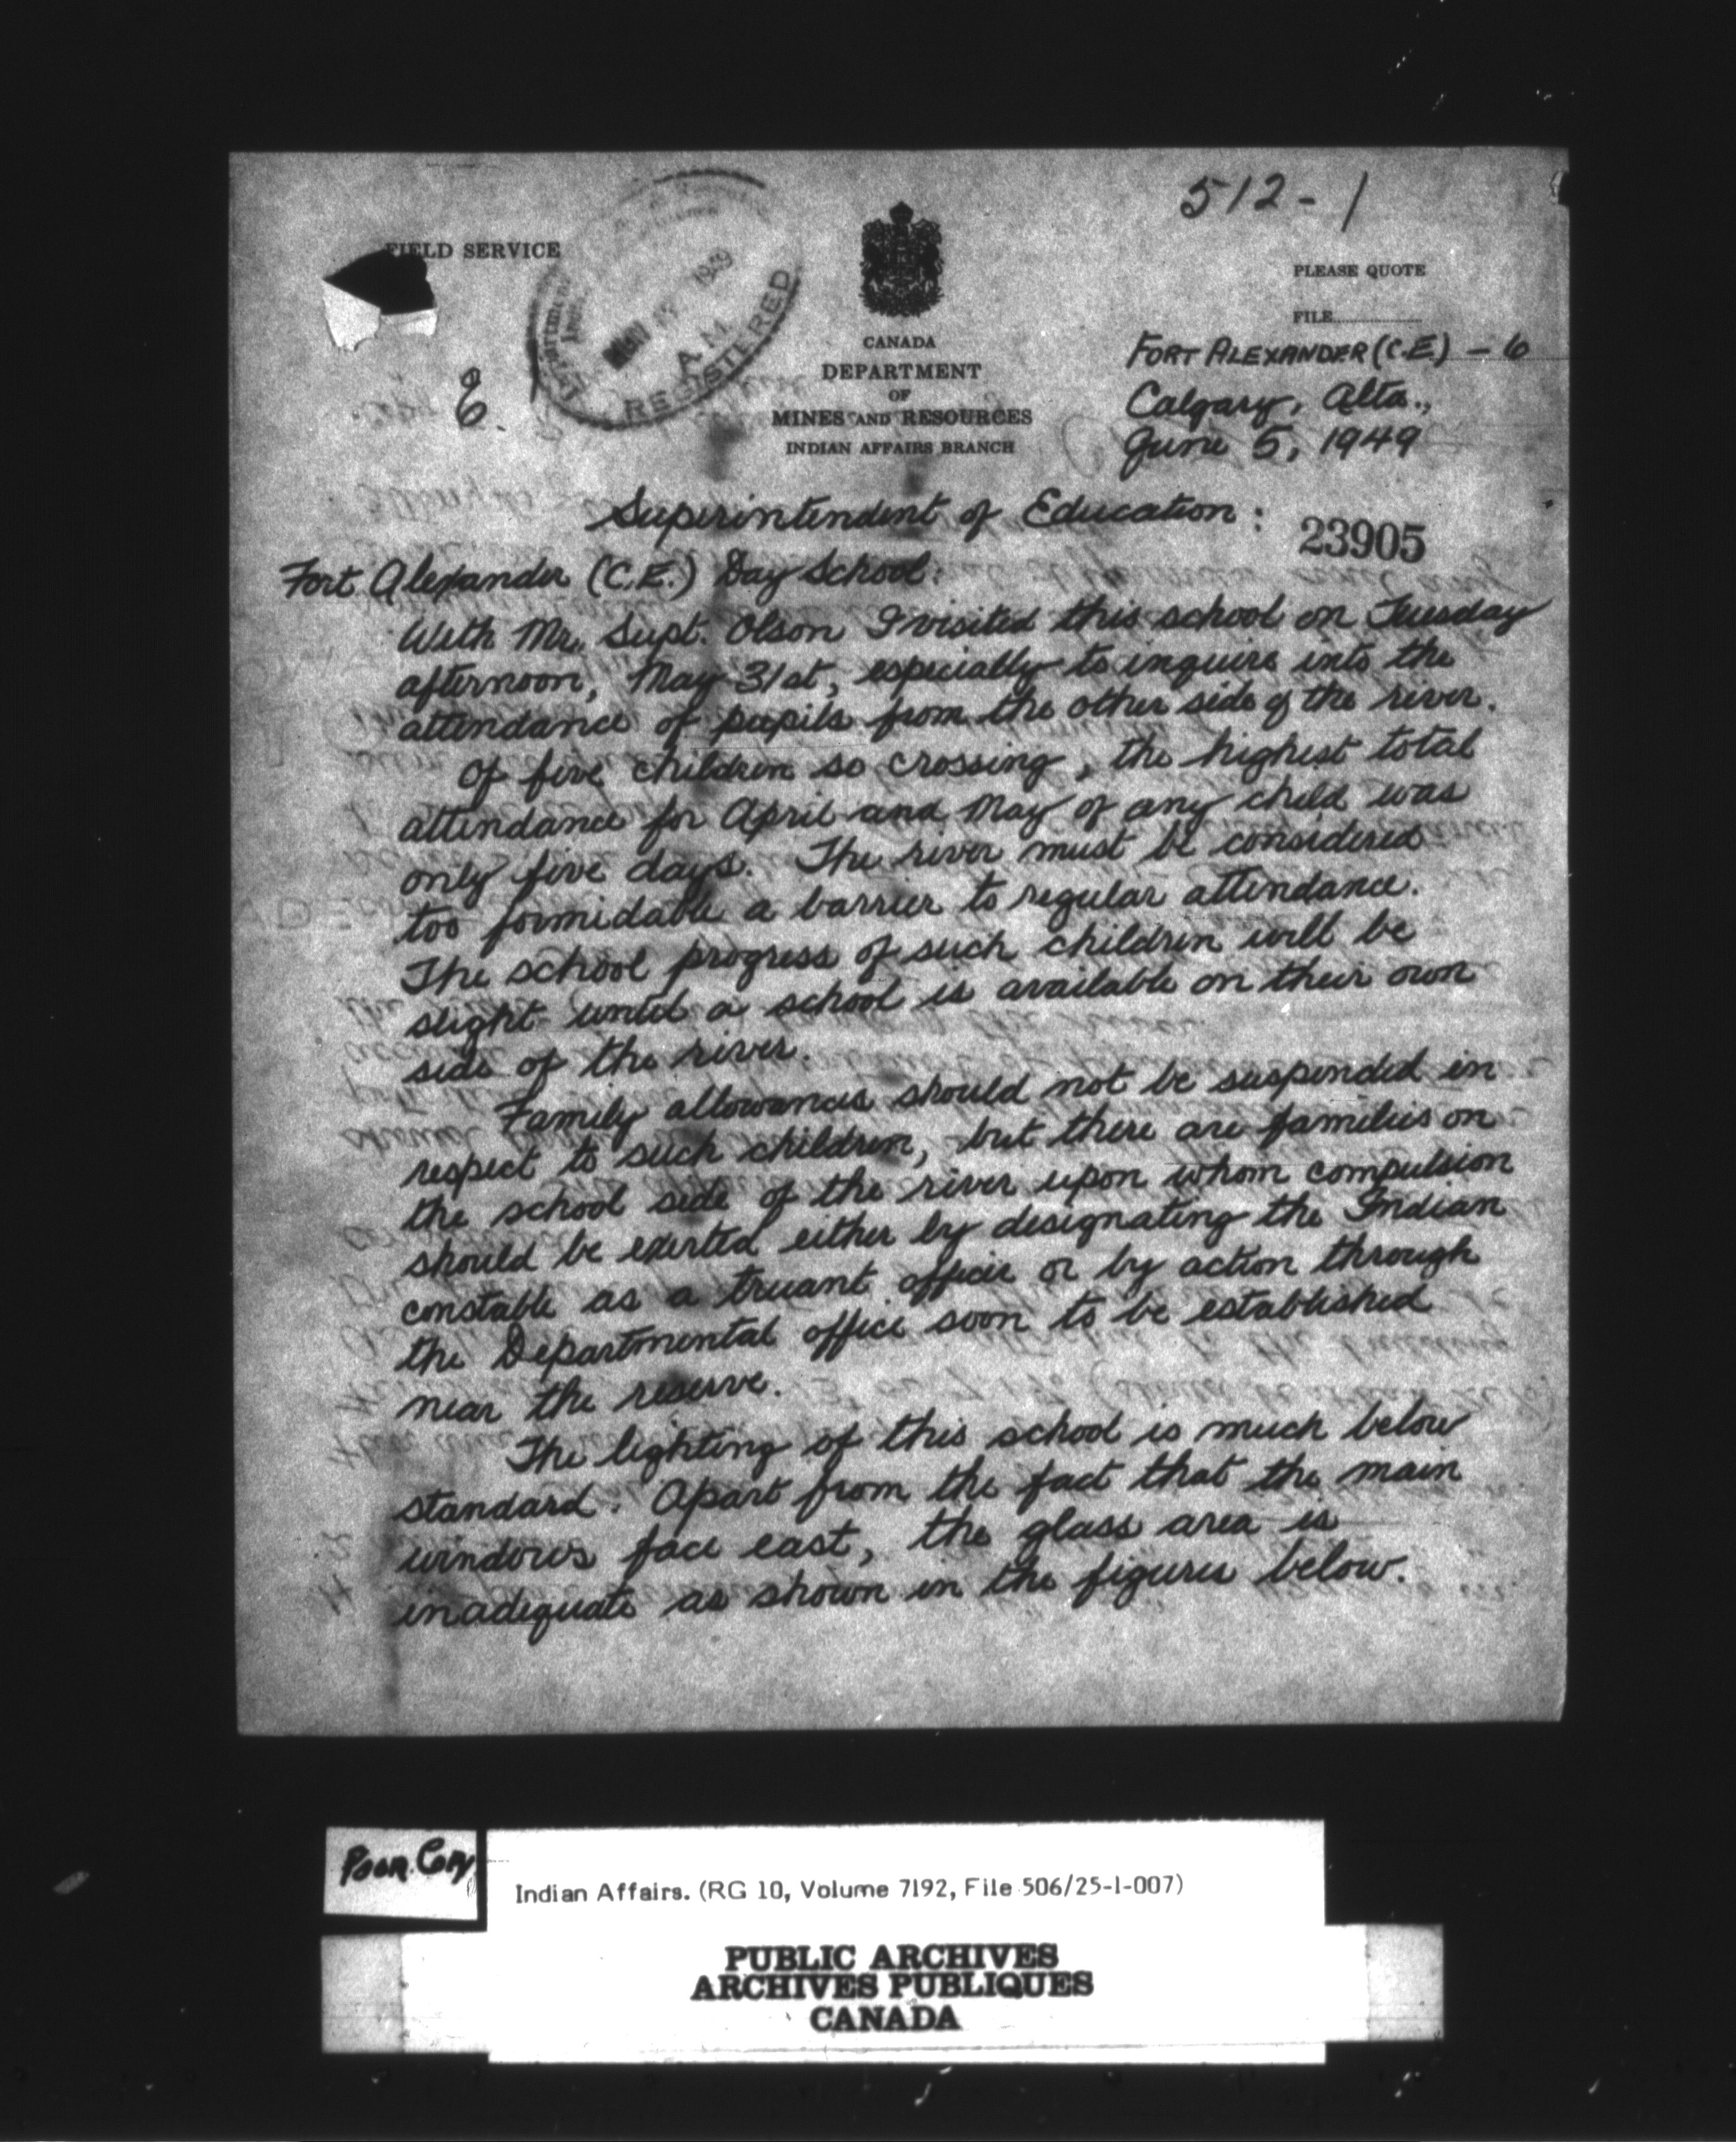 512-1
FIELD SERVICE
1949
A.M.
REGISTERED
PLEASE QUOTE
FILE
CANADA
DEPARTMENT
OF
MINES AND RESOURCES
INDIAN AFFAIRS BRANCH
FORT ALEXANDER (C.E.) - 6
Calgary, Alta.,
June 5, 1949
E.
Superintendent of Education:
23905
Fort Alexander (C.E.) Day School:
With Mr. Supt. Olson I visited this school on Tuesday
afternoon, May 31st, especially to inquire into the
attendance of pupils from the other side of the river.
Of five children so crossing, the highest total
attendance for April and May of any child was
only five days. The river must be considered
too formidable a barrier to regular attendance.
The school progress of such children will be
slight until a school is available on their own
side of the river.
Family allowances should not be suspended in
respect to such children, but there are families on
the school side of the river upon whom compulsion
should be exerted either by designating the Indian
constable as a truant officer or by action through
the Departmental office soon to be established
near the reserve.
The lighting of this school is much below
standard. Apart from the fact that the main
windows face east, the glass area is
inadequate as shown in the figures below.
Poor Copy
Indian Affairs. (RG 10, Volume 7192, File 506/25-1-007)
PUBLIC ARCHIVES
ARCHIVES PUBLIQUES
CANADA